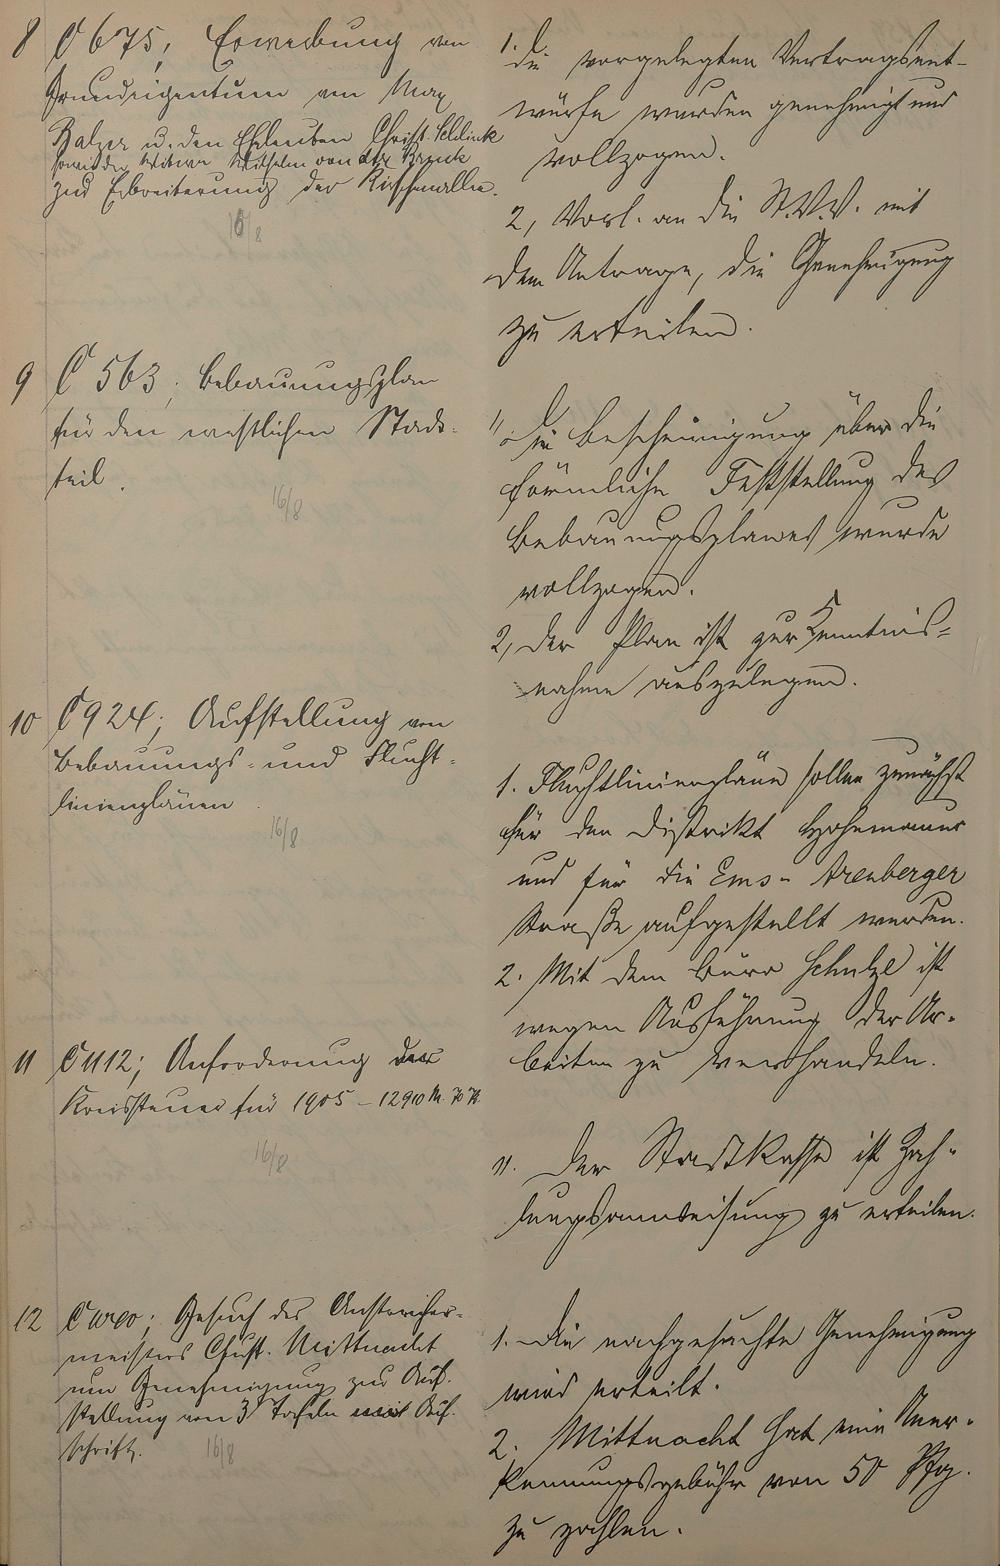 8 C 675; Erwerbung von
Grundeigentum von Max
Balzer u. den Eheleuten Christ. Schlink
sowie der Witwe Wilhelm von der Bruck
zur Erbreiterung der Kirschenallee.
16/8
1. Die vorgelegten Vertragsent-
würfe wurden genehmigt und
vollzogen.
2, Vorl. an die St.V.V. mit
dem Antrage, die Genehmigung
zu erteilen.
9 C 563; Bebauungsplan
für den westlichen Stadt-
teil.
16/8
1, Die Bescheinigung über die
förmliche Feststellung des
Bebauungsplanes wurde
vollzogen.
2, Der Plan ist zur Kenntnis-
nahme auszulegen.
10 C 924; Aufstellung von
Bebauungs- und Flucht-
linienplänen.
16/8
1. Fluchtlinienpläne sollen zunächst
für den Distrikt Hohemauer
und für die Ems- Arenberger
Straße aufgestellt werden.
2. Mit dem Büro Schulze ist
wegen Ausführung der Ar-
beiten zu verhandeln.
11 C 1112; Anforderung der
Kreissteuer für 1905 – 12910 M. 70 Pf.
16/8
11. Der Stadtkasse ist Zah-
lungsanweisung zu erteilen.
12 Gesuch des Anstreicher-
meisters Chrst. Mittnacht
um Genehmigung zur Auf-
stellung von 3 Tafeln mit Auf-
schrift.
16/8
1. Die nachgesuchte Genehmigung
wird erteilt.
2. Mittnacht hat eine Aner-
kennungsgebühr von 50 Pfg.
zu zahlen.